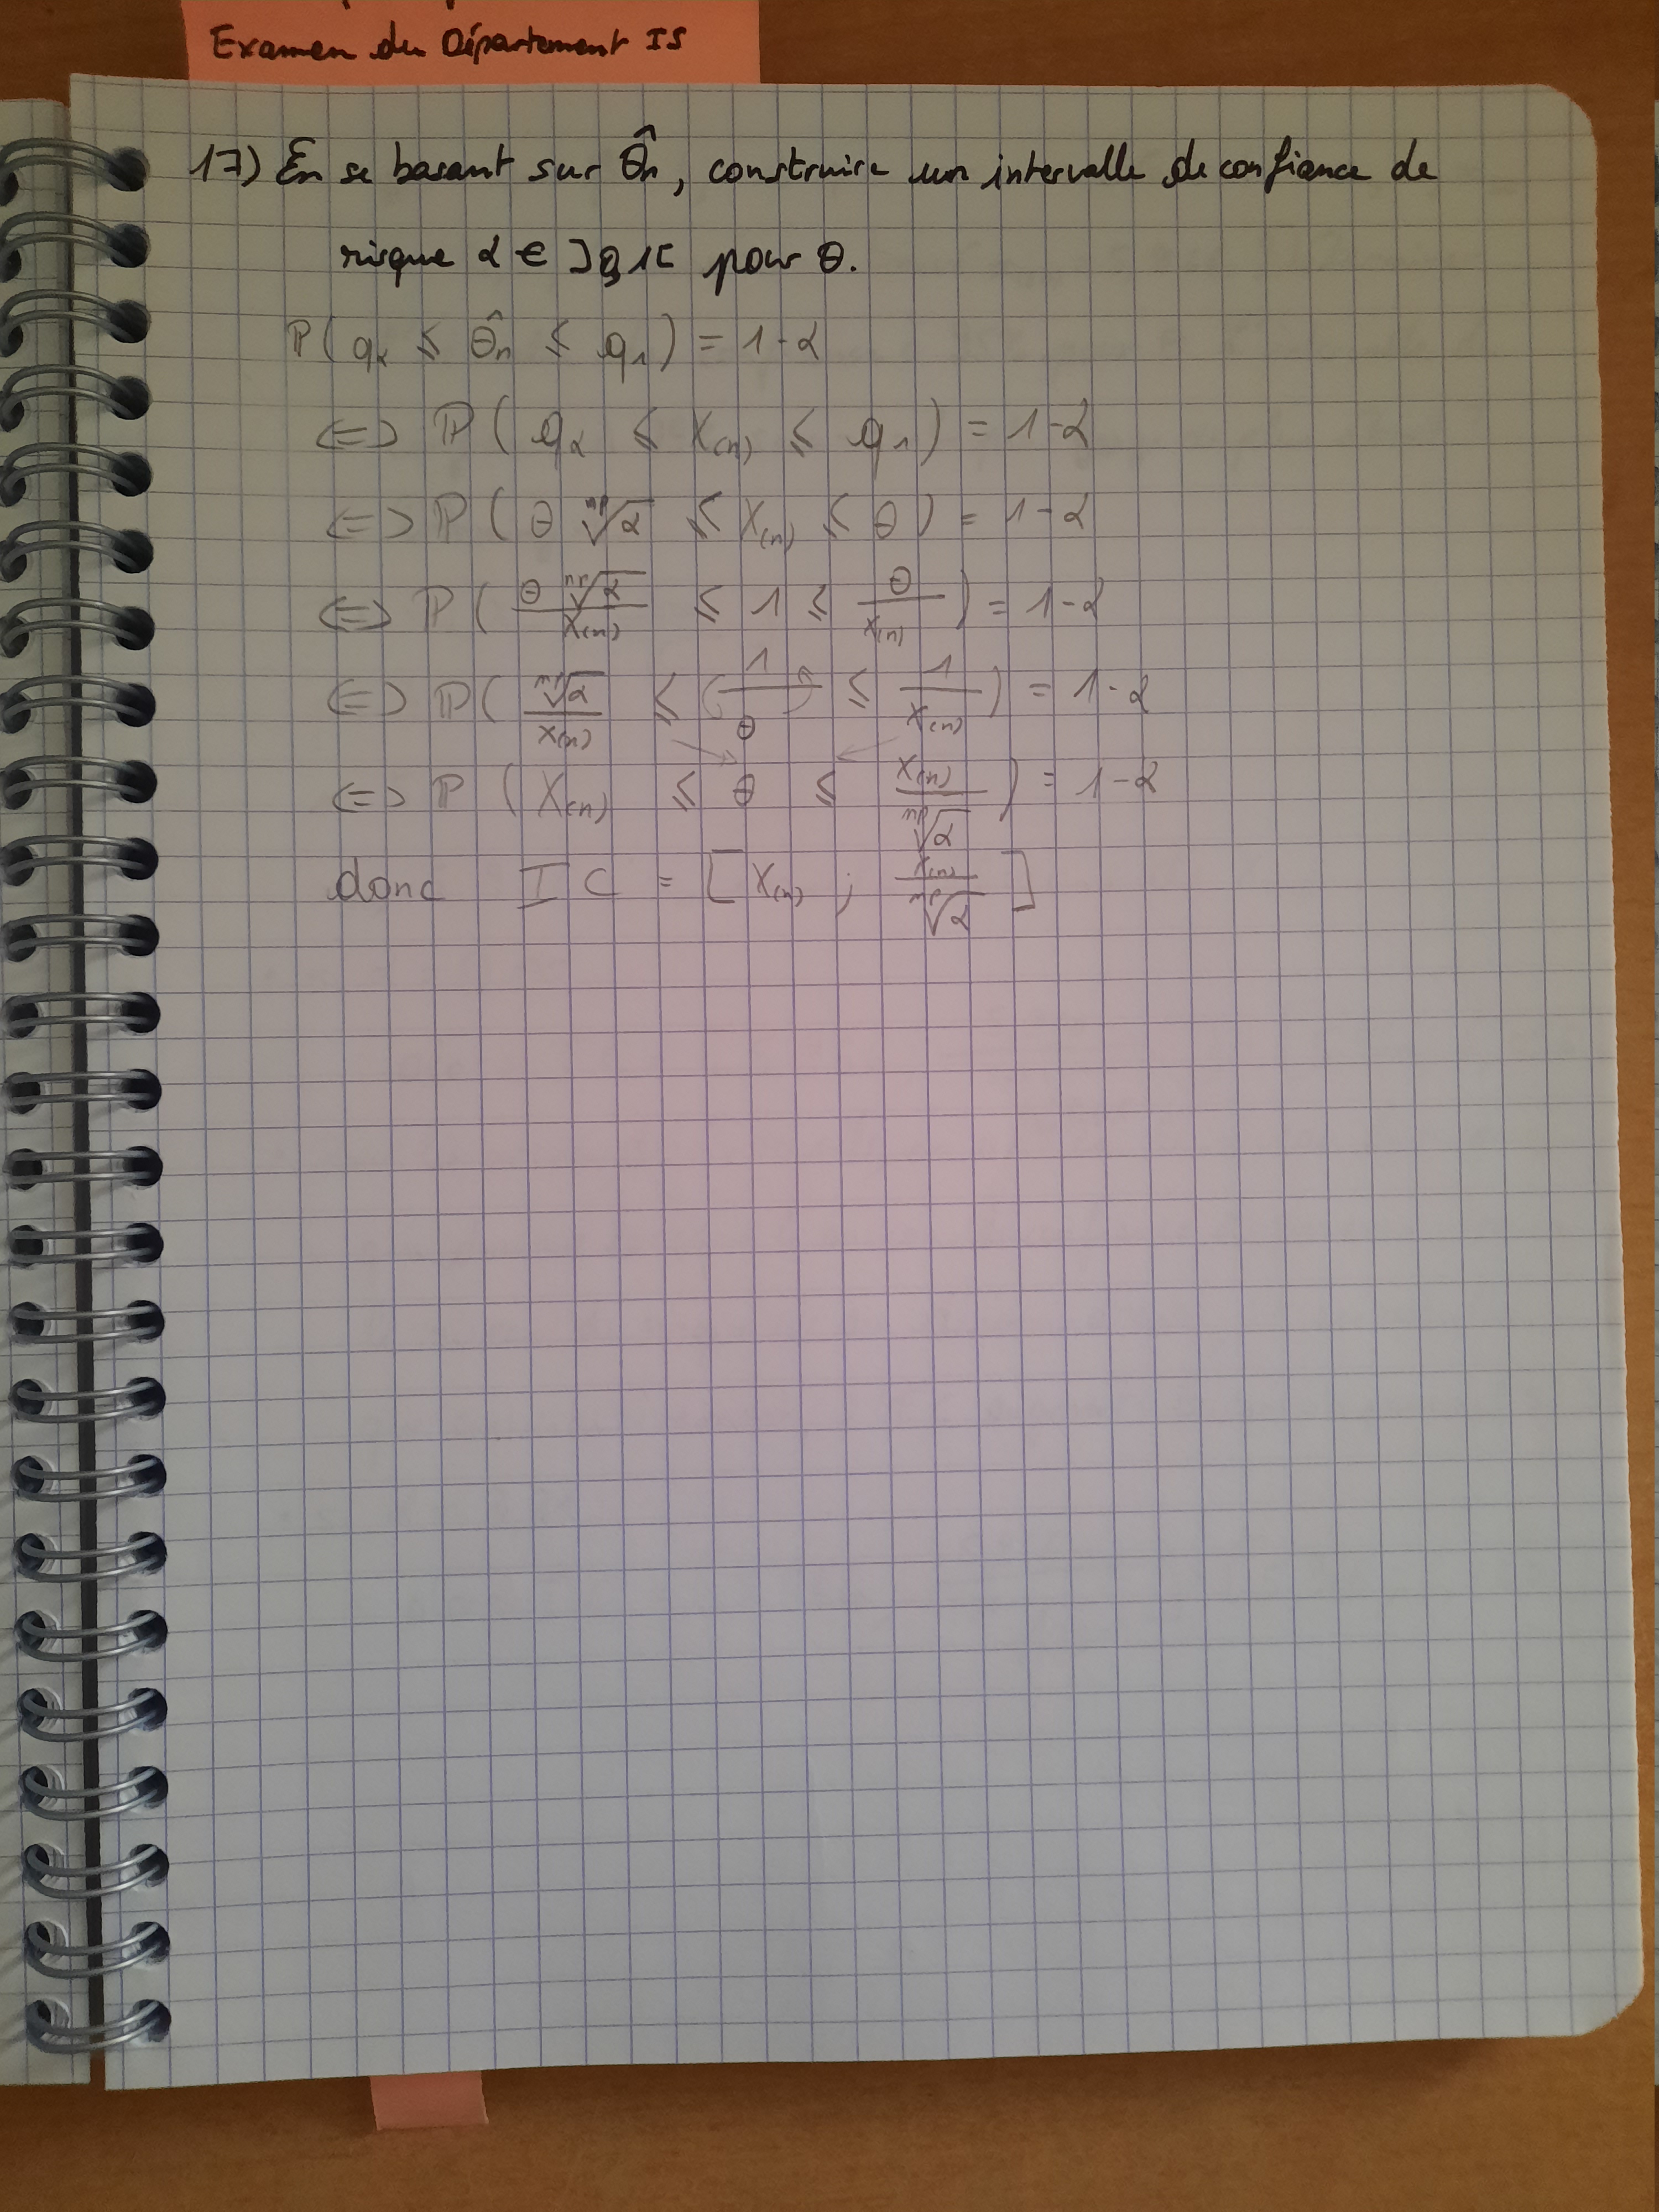 Examen du Département IS
17) En se basant sur θ̂n, construire un intervalle de confiance de
risque α ∈ ]0,1[ pour θ.
ℙ( qα ≤ θ̂n ≤ q1 ) = 1-α
⇔ ℙ( qα ≤ X(n) ≤ q1 ) = 1-α
⇔ ℙ( θ ⁿᵖ√α ≤ X(n) ≤ θ ) = 1-α
⇔ ℙ( θ ⁿᵖ√α / X(n) ≤ 1 ≤ θ / X(n) ) = 1-α
⇔ ℙ( ⁿᵖ√α / X(n) ≤ 1 / θ ≤ 1 / X(n) ) = 1-α
⇔ ℙ( X(n) ≤ θ ≤ X(n) / ⁿᵖ√α ) = 1-α
donc IC = [ X(n) ; X(n) / ⁿᵖ√α ]